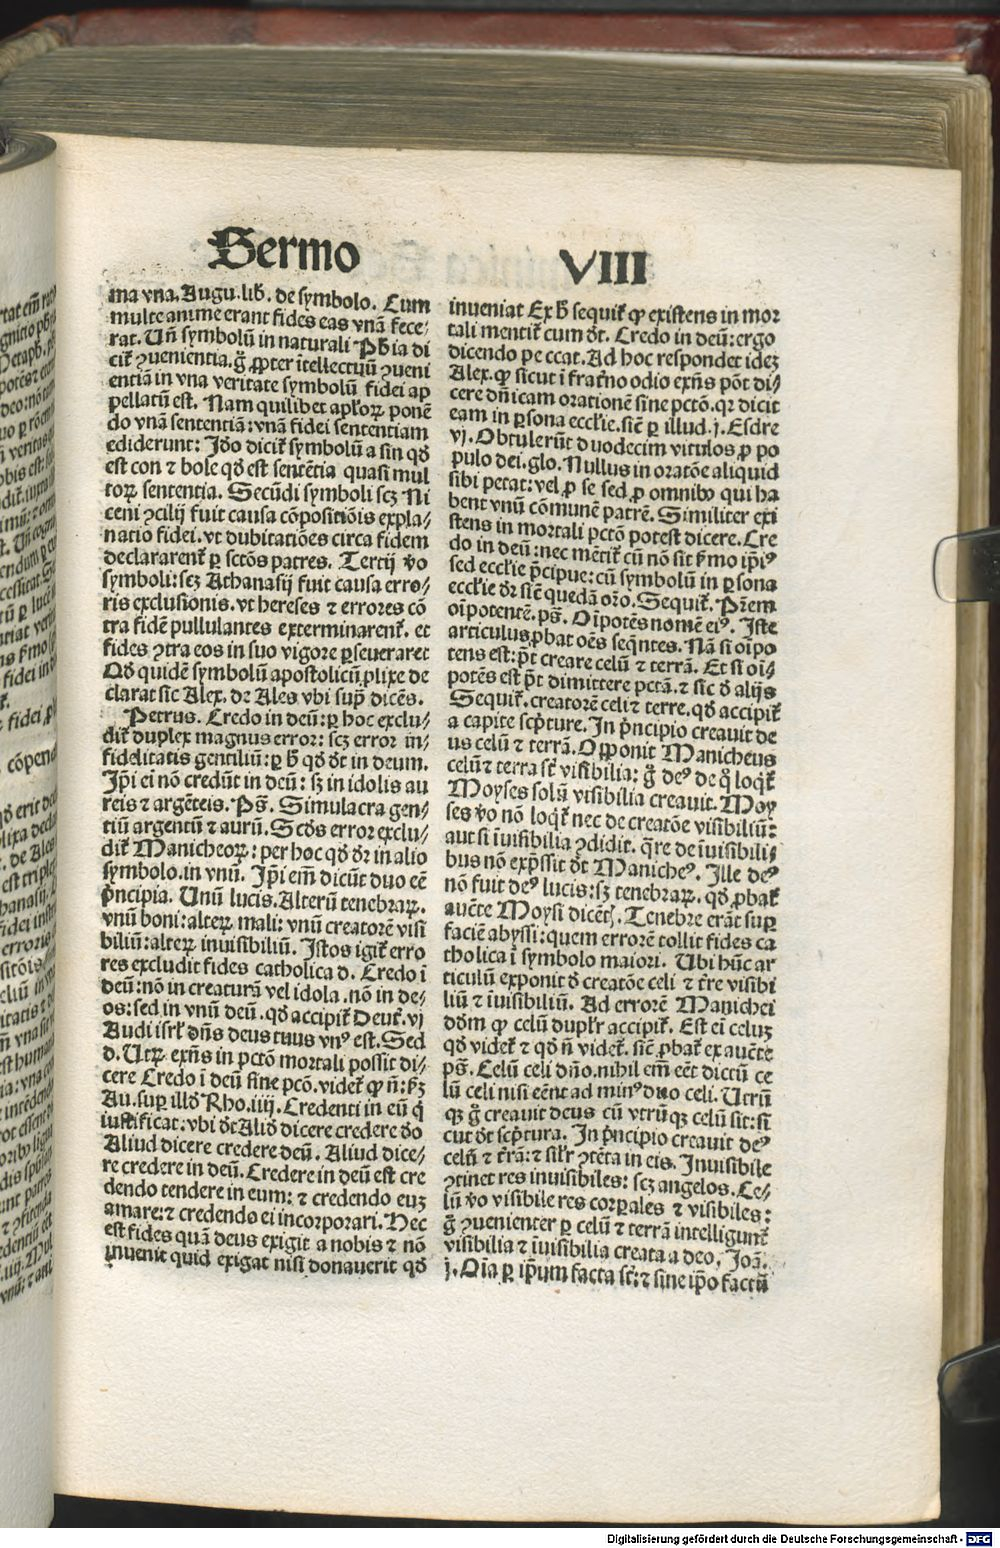 Sermo VIII
ma vna. Augu. lib̃. de symbolo. Cum
multe anime erant fides eas vnã fece⸗
rat. Uñ symbolũ in naturali Pħia di
cit᷑ ꝯuenientia. g̃ ꝓpter ĩtellectuũ ꝯueni
entiã in vna veritate symbolũ fidei ap
pellatũ est. Nam quilibet apl̃oꝝ ponẽ
do vnã sententiã: vnã fidei sententiam
ediderunt: Jdo dicit᷑ symbolũ a sin qđ
est con ⁊ bole qđ est sentẽtia quasi mul
toꝝ sententia. Secũdi symboli scꝫ Ni
ceni ꝯcilij fuit causa cõpositiõis expla⸗
natio fidei. vt dubitatiões circa fidem
declararent᷑ ꝑ sctõs patres. Tertij ṽo
symboli: scꝫ Athanasij fuit causa erro⸗
ris exclusionis. vt hereses ⁊ errores cõ
tra fidẽ pullulantes exterminarent᷑. et
fides ꝯtra eos in suo vigore ꝑseueraret
Qđ quidẽ symbolũ apostolicũ ꝓlixe de
clarat sic Alex. de Ales vbi sup̃ dicẽs.
Petrus. Credo in deũ: ꝑ hoc exclu⸗
dit᷑ duplex magnus error: scꝫ error in⸗
fidelitatis gentiliũ: ꝑ ħ qđ đt in deum.
Jp̃i ei nõ credũt in deũ: sꝫ in idolis au
reis ⁊ argẽteis. Ps̃. Simulacra gen⸗
tiũ argentũ ⁊ aurũ. Scđs error exclu⸗
dit᷑ Manicheoꝝ: per hoc qđ đr in alio
symbolo. in vnũ. Jp̃i eĩ dicũt duo eẽ
p̃ncipia. Unũ lucis. Alterũ tenebraꝝ.
vnũ boni: alteꝝ mali: vnũ creatorẽ visi
biliũ: alteꝝ inuisibiliũ. Jstos igit᷑ erro
res excludit fides catholica d. Credo ĩ
deũ: nõ in creaturã vel idola. nõ in de⸗
os: sed in vnũ deũ. qđ accipit᷑ Deut᷑. vj
Audi isrł dñs deus tuus vnꝰ est. Sed
d. Utꝝ exñs in pctõ mortali possit di⸗
cere Credo ĩ deũ sine pcõ. videt᷑ ꝙ ñ:
Au. suꝑ illđ Rho. iiij. Credenti in eũ q̃
iustificat: vbi đt Aliđ dicere credere đo
Aliud dicere credere deũ. Aliud dice⸗
re credere in deũ. Credere in deũ est cre
dendo tendere in eum: ⁊ credendo euꝫ
amare: ⁊ credendo ei incorporari. Hec
est fides quã deus exigit a nobis ⁊ nõ
inuenit quid exigat nisi donauerit qđ
inueniat Ex ħ sequit᷑ ꝙ existens in mor
tali mentit᷑ cum đt. Credo in deũ: ergo
dicendo peccat. Ad hoc respondet ideꝫ
Alex. ꝙ sicut ĩ frat᷑no odio exñs põt di⸗
cere dñicam orationẽ sine pctõ. qꝛ dicit
eam in ꝑsona eccl̃ie. siẽ ꝑ illud. j. Esdre
vj. Obtulerũt duodecim vitulos ꝓ po
pulo dei. glo. Nullus in oratõe aliquid
sibi petat: vel ꝓ se sed ꝓ omnibꝰ qui ha
bent vnũ cõmunẽ patrẽ. Similiter exi
stens in mortali pctõ potest dicere. Cre
do in deũ: nec mẽtit᷑ cũ nõ sit sermo ip̃iꝰ
sed eccl̃ie p̃cipue: cũ symbolũ in ꝑsona
eccl̃ie đr siẽ quedã orõ. Sequit᷑. Pr̃em
oĩpotentẽ. ps̃. Oĩpotẽs nomẽ eiꝰ. Jste
articulus ꝓbat oẽs seqñtes. Nã si oĩpo
tens est: p̃t creare celũ ⁊ terrã. Et si oĩ⸗
potẽs est p̃t dimittere pctã. ⁊ sic đ alijs
Sequit᷑. creatorẽ celi ⁊ terre. qđ accipit᷑
a capite scp̃ture. Jn p̃ncipio creauit de
us celũ ⁊ terrã. Opponit Manicheus
celũ ⁊ terra st̃ visibilia: g̃ deꝰ de q̃ loqt᷑
Moyses solũ visibilia creauit. Moy
ses ṽo nõ loqt᷑ nec de creatõe visibiliũ:
aut si ĩuisibilia ꝯdidit. q̃re de ĩuisibili⸗
bus nõ exp̃ssit đt Manicheꝰ. Jlle deꝰ
nõ fuit deꝰ lucis: sꝫ tenebraꝝ. qđ ꝓbat᷑
auẽte Moysi dicẽt. Tenebre erãt suꝑ
faciẽ abyssi: quem errorẽ tollit fides ca
tholica ĩ symbolo maiori. Ubi hũc ar
ticulũ exponit đ creatõe celi ⁊ tr̃e visibi
liũ ⁊ ĩuisibiliũ. Ad errorẽ Manichei
đđm ꝙ celũ dupl̃r accipit᷑. Est eĩ celuꝫ
qđ videt᷑ ⁊ qđ ñ videt᷑. siẽ ꝓbat᷑ ex auẽte
ps̃. Celũ celi dño. nihil eĩ eẽt dictũ ce
lũ celi nisi eẽnt ad minꝰ duo celi. Utrũ
qꝫ g̃ creauit deus cũ vtrũqꝫ celũ sit: si
cut đt scp̃tura. Jn p̃ncipio creauit deꝰ
celũ ⁊ tr̃ã: ⁊ sil̃r ꝯtẽta in eis. Jnuisibile
ꝯtinet res inuisibiles: scꝫ angelos. Ce⸗
lũ ṽo visibile res corꝑales ⁊ visibiles:
g̃ ꝯuenienter ꝑ celũ ⁊ terrã intelligunt᷑
visibilia ⁊ ĩuisibilia creata a deo. Joã.
j. Oĩa ꝑ ip̃um facta st̃: ⁊ sine ip̃o factũ
Digitalisierung gefördert durch die Deutsche Forschungsgemeinschaft - DFG